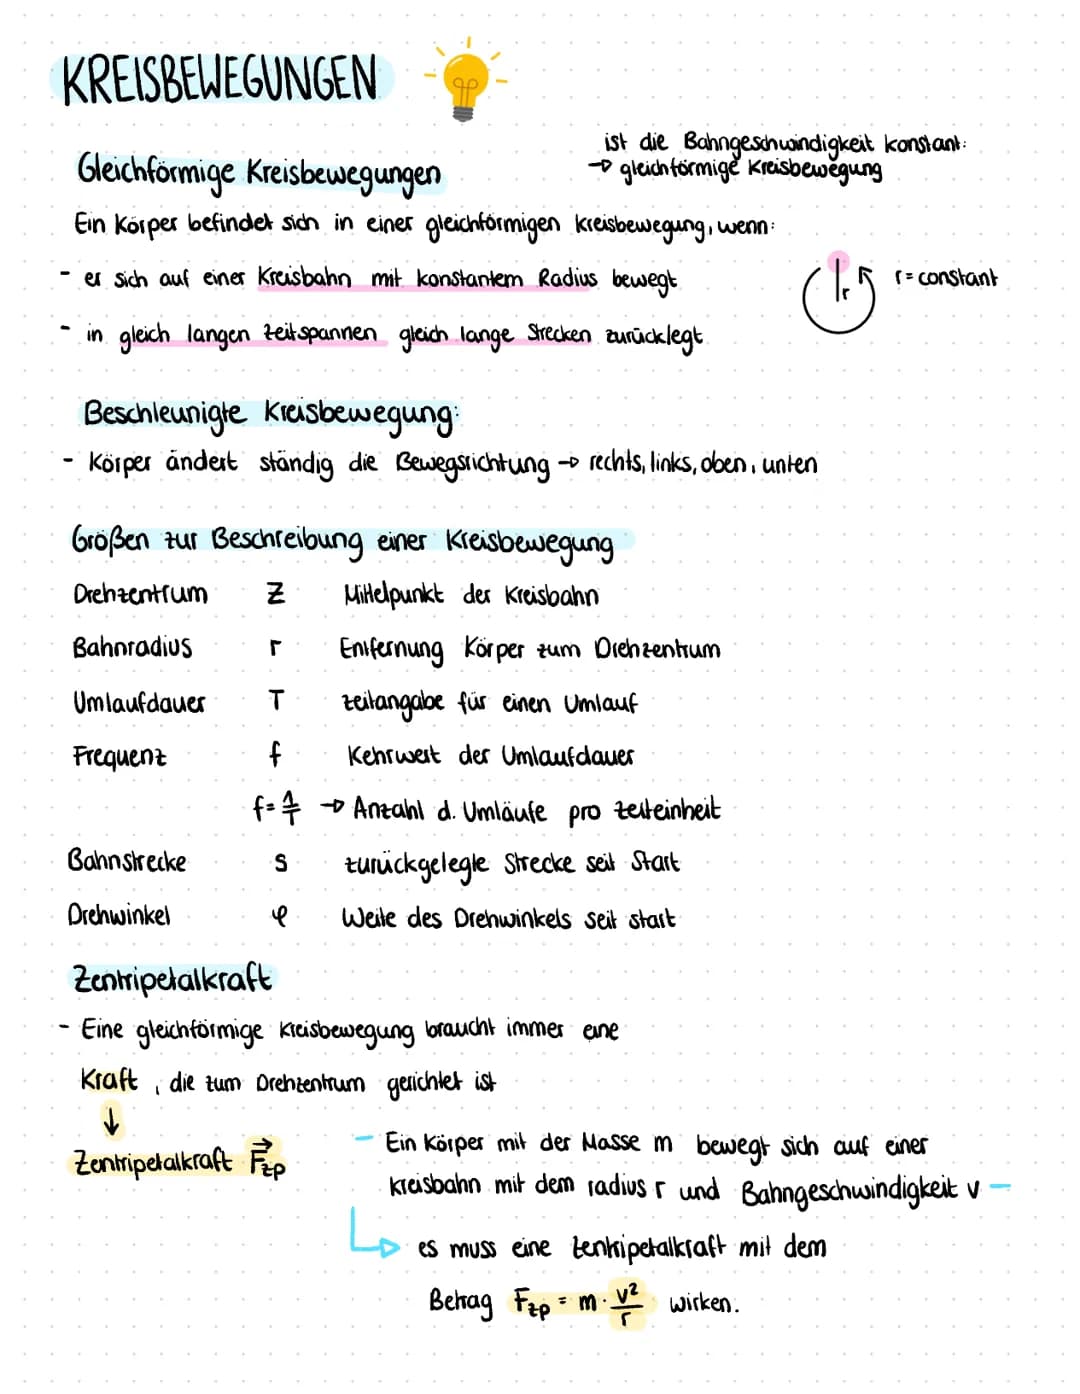 KREISBEWEGUNGEN
ist die Bahngeschwindigkeit konstant:
→ gleichförmige Kreisbewegung
Gleichförmige Kreisbewegungen
Ein Körper befindet sich in einer gleichförmigen Kreisbewegung, wenn:
- er sich auf einer Kreisbahn mit konstantem Radius bewegt
r
r = constant
- in gleich langen Zeitspannen gleich lange Strecken zurücklegt
Beschleunigte Kreisbewegung:
- Körper ändert ständig die Bewegsrichtung → rechts, links, oben, unten
Größen zur Beschreibung einer Kreisbewegung
Drehzentrum Z Mittelpunkt der Kreisbahn
Bahnradius r Entfernung Körper zum Drehzentrum
Umlaufdauer T Zeitangabe für einen Umlauf
Frequenz f Kehrwert der Umlaufdauer
f = 1/T → Anzahl d. Umläufe pro Zeiteinheit
Bahnstrecke s zurückgelegte Strecke seit Start
Drehwinkel φ Weite des Drehwinkels seit Start
Zentripetalkraft
- Eine gleichförmige Kreisbewegung braucht immer eine
Kraft, die zum Drehzentrum gerichtet ist
↓
Zentripetalkraft F⃗zp
- Ein Körper mit der Masse m bewegt sich auf einer
Kreisbahn mit dem radius r und Bahngeschwindigkeit v -
↳ es muss eine Zentripetalkraft mit dem
Betrag Fzp = m · v²/r wirken.